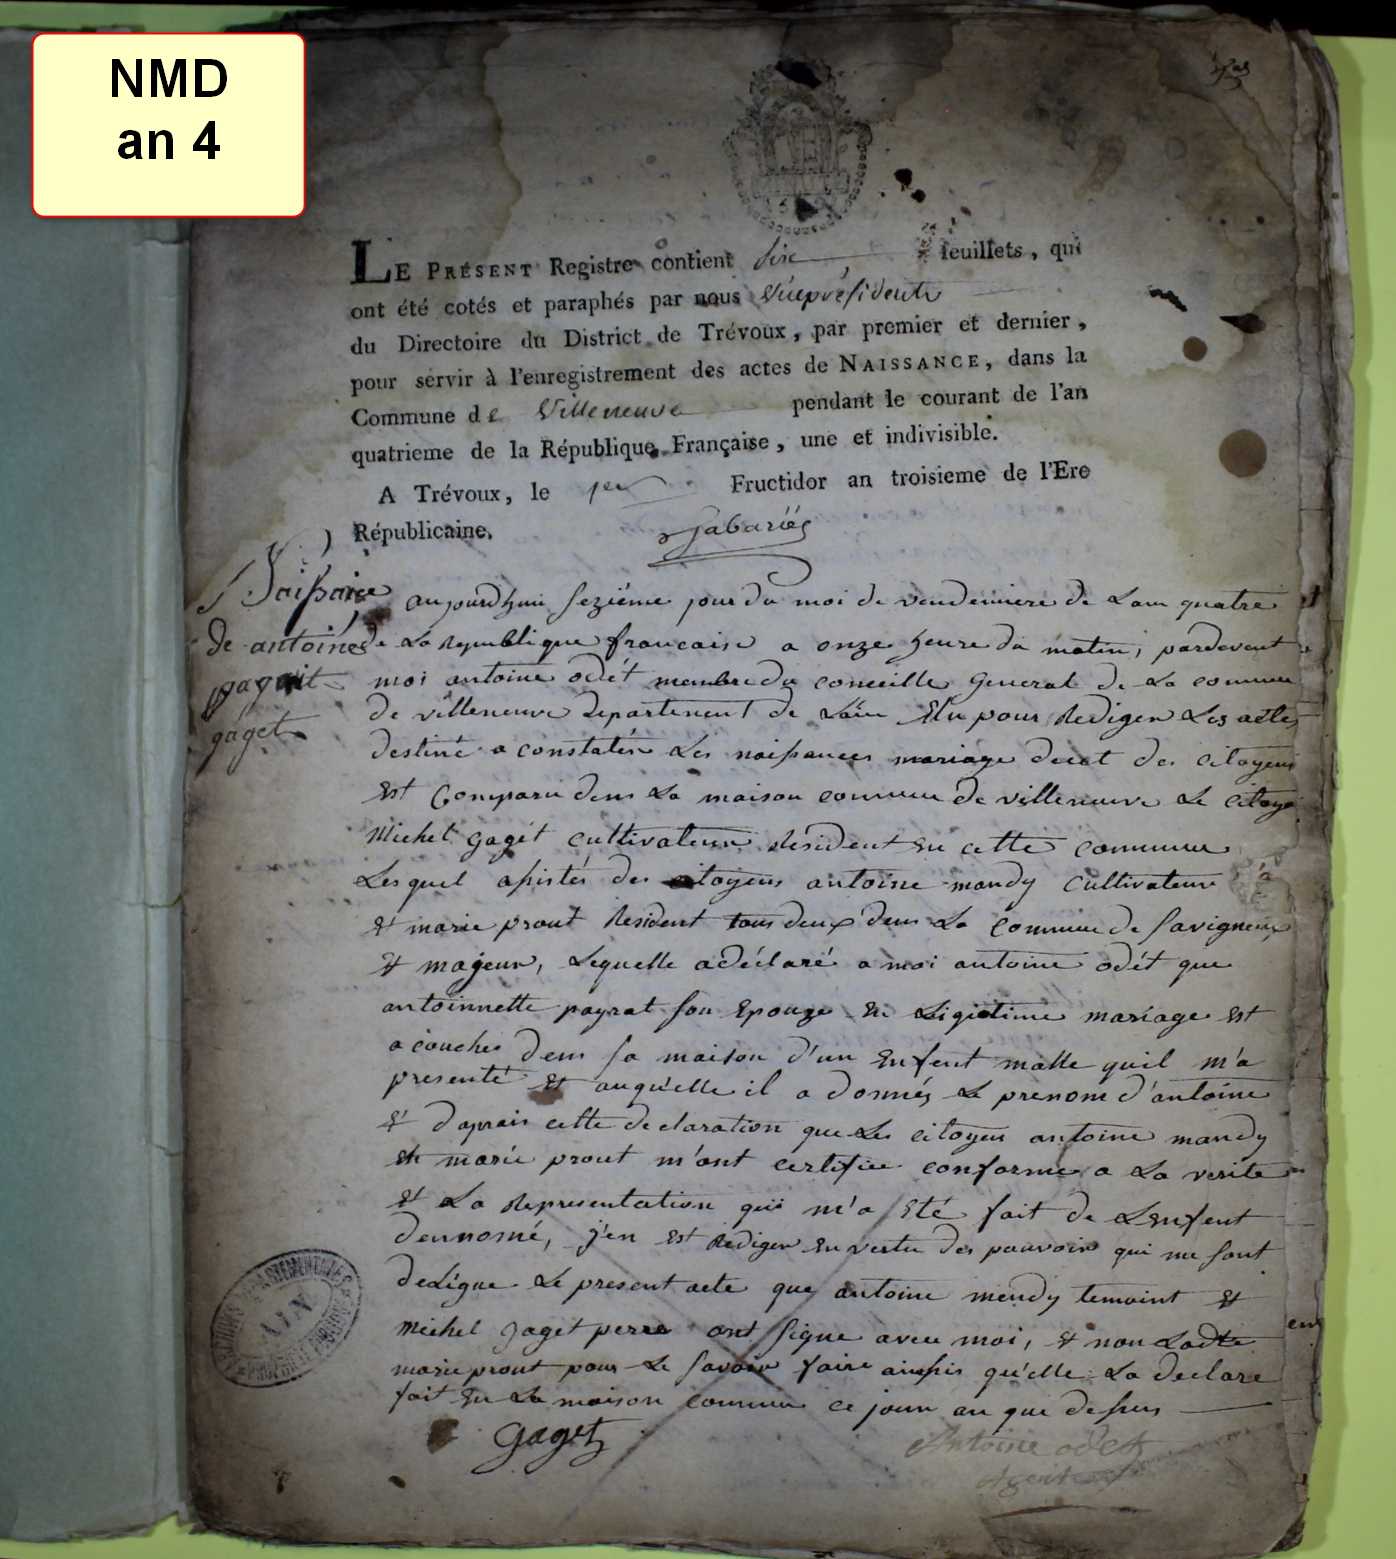 NMD
an 4
LE PRÉSENT Registre contient dix feuillets, qui
ont été cotés et paraphés par nous Viceprésident
du Directoire du District de Trévoux, par premier et dernier,
pour servir à l'enregistrement des actes de NAISSANCE, dans la
Commune de Villeneuve pendant le courant de l'an
quatrieme de la République Française, une et indivisible.
A Trévoux, le 1er Fructidor an troisieme de l'Ere
Républicaine.
Naissance
de antoine
gaget
aujourdhui sezième jour du moi de vendemiere de Lan quatre
de La Republique francaise a onze heure du matin, pardevent
moi antoine odét membre du conseille General de La commune
de villeneuve departement de Lain Elu pour Rediger Les actes
destiné a constatér Les naissances mariage decet des citoyens
Est Comparu dens La maison commune de villeneuve Le citoye
Michel gagét cultivateur Resident En cette commune
Lesquel assistés des citoyens antoine mandy cultivateur
Et marie prout Resident tous deux dens La commune de Savigneux
Et majeur, Lequelle a déclaré a moi antoine odét que
antoinnette payrat son Epouze En Ligietime mariage Est
acouches dens sa maison d'un Enfent malle quil m'a
presenté Et auquelle il a donnés Le prenom d'antoine
Et daprais cette declaration que Les citoyen antoine mandy
Et marie prout m'ont certifiee conforme a La verite
Et La Representation qui m'a Eté fait de LEnfent
dennomé, j'en Est Rediger En vertu des pouvoir qui me sont
deLégue Le present acte que antoine mendy temoint Et
Michel gaget perre ont signe avec moi, Et non Ladte
marie prout pour Le savoir faire ainssis qu'elle La declare
fait En La maison commune ce jour an que dessus
gaget
Antoine odet
Agent
ARCHIVES DEPARTEMENTALES
AIN